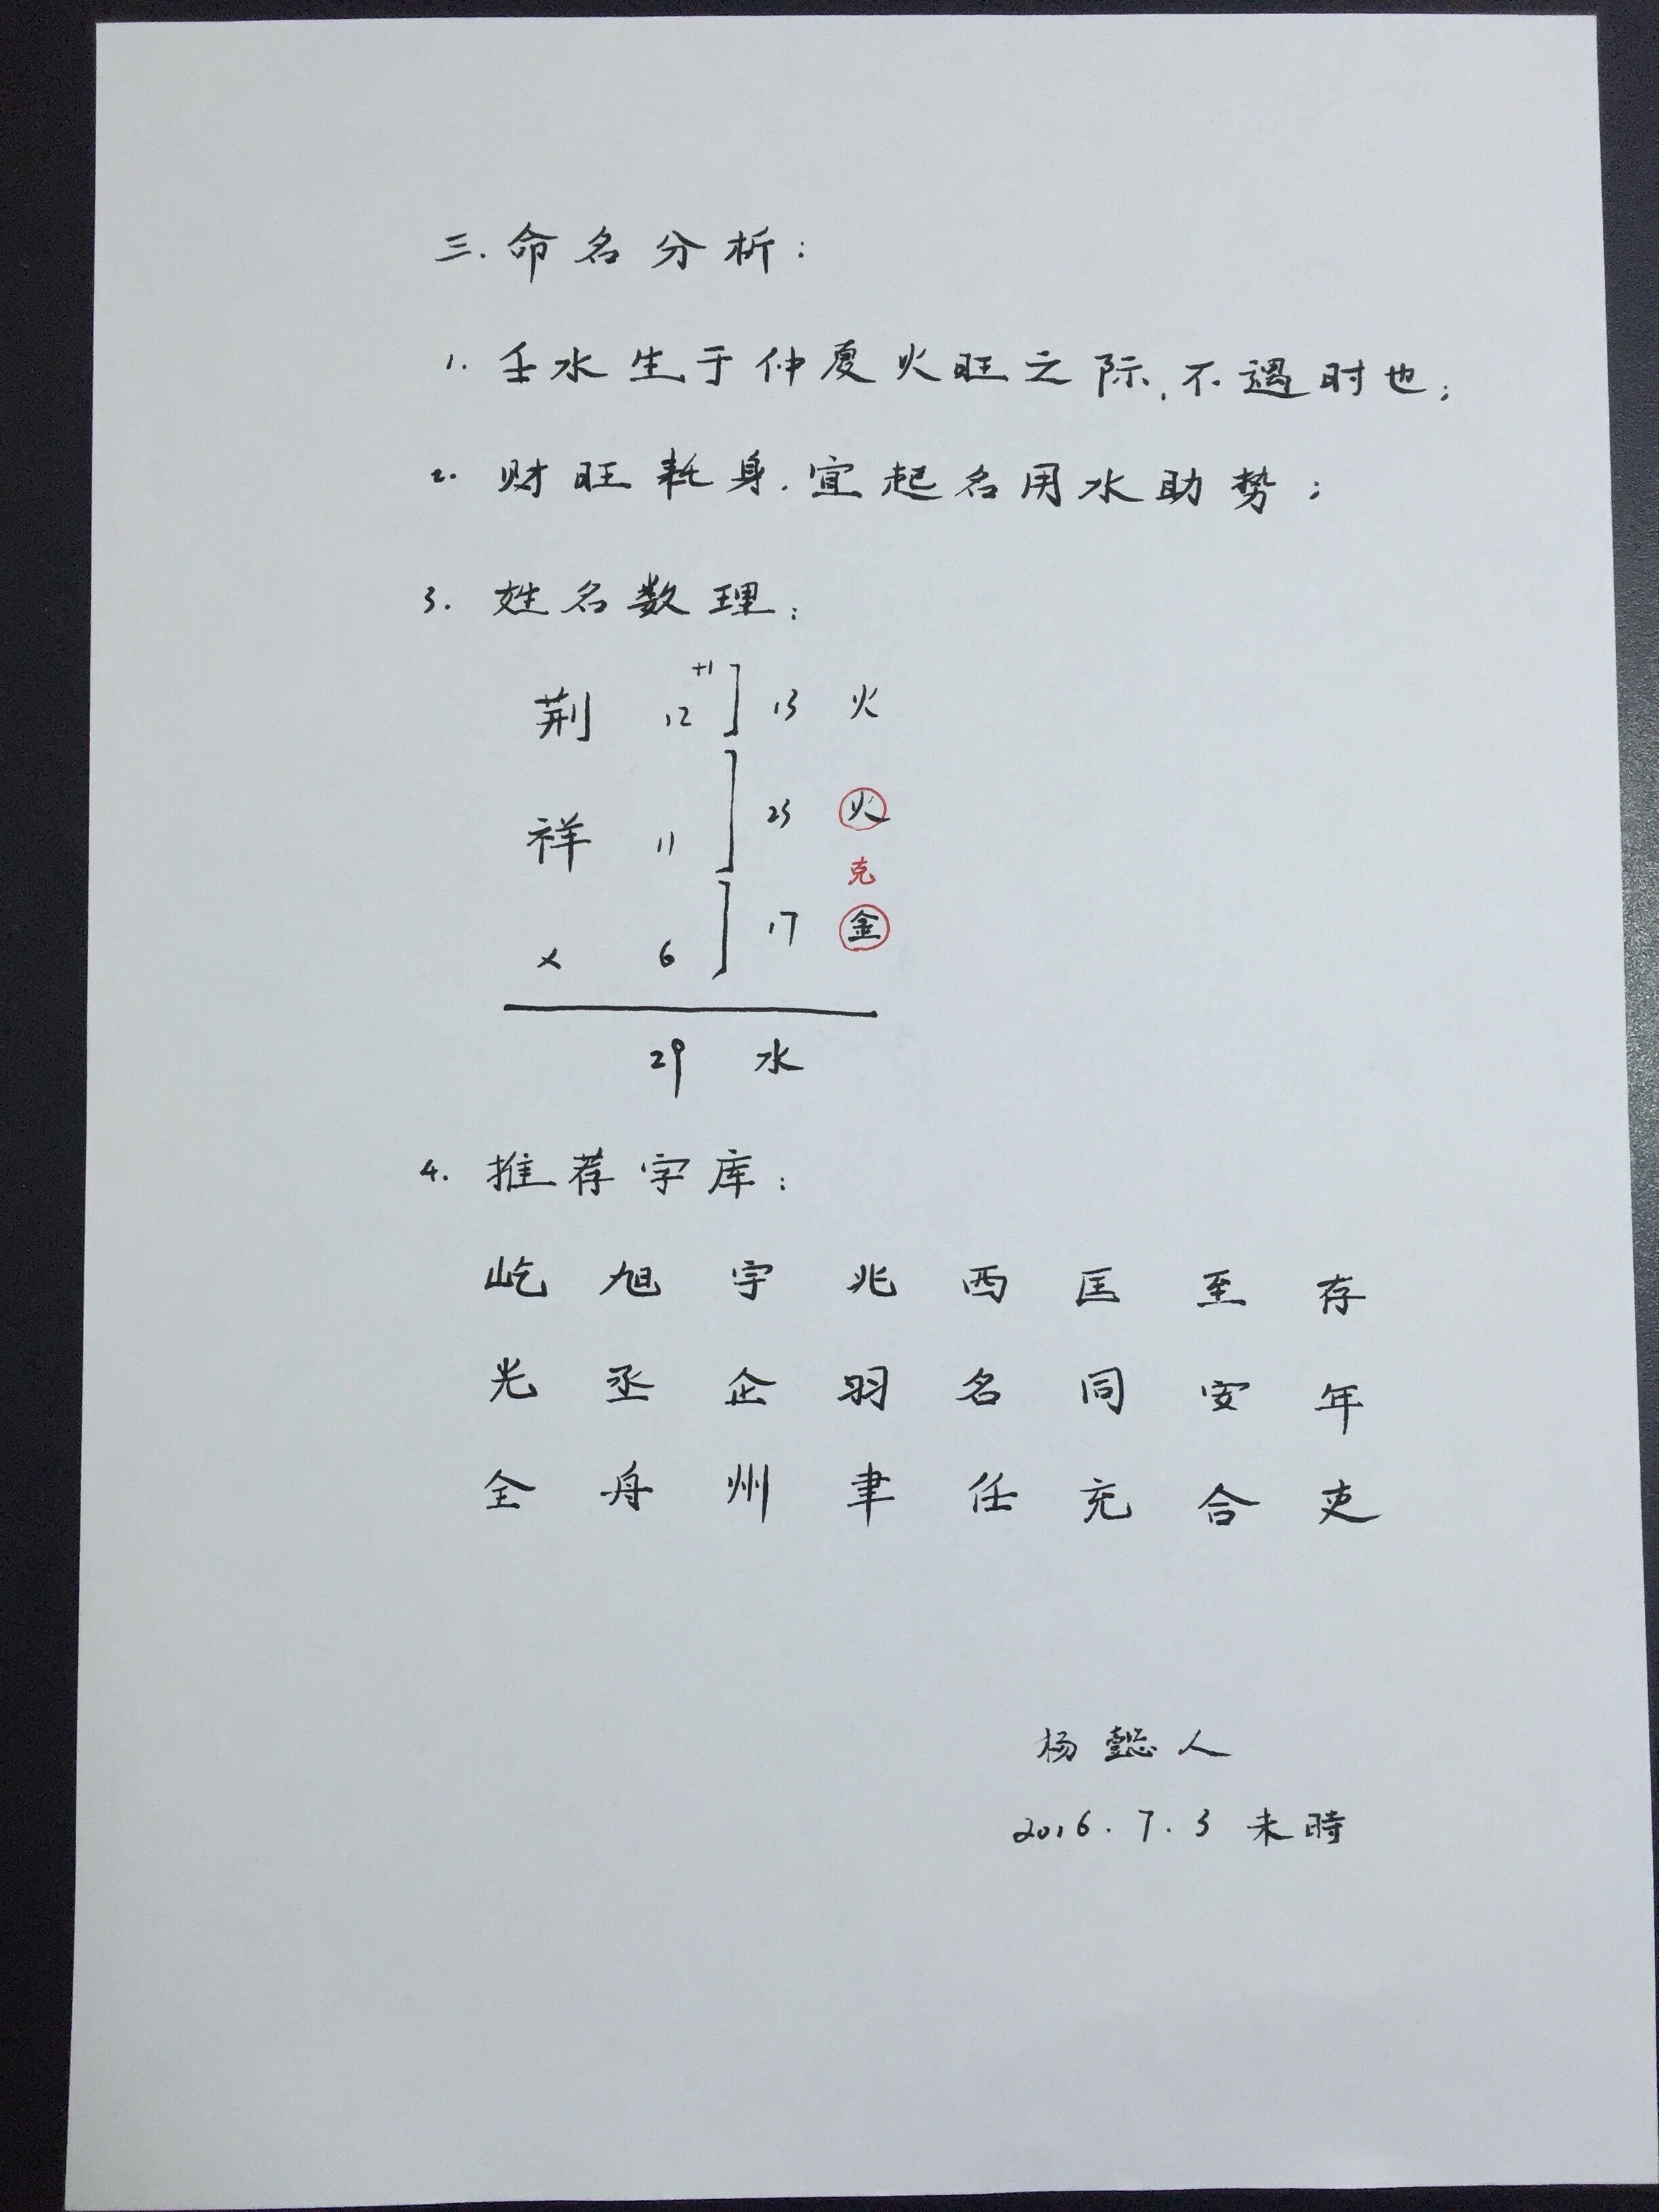 三.命名分析:
1. 壬水生于仲夏火旺之际,不遇时也;
2. 财旺耗身.宜起名用水助势;
3. 姓名数理:
+1
荆 12 13 火
祥 11 23 火
克
× 6 17 金
29 水
4. 推荐字库:
屹 旭 宇 兆 西 匡 至 存
光 丞 企 羽 名 同 安 年
全 舟 州 聿 任 充 合 吏
杨懿人
2016.7.3 未時